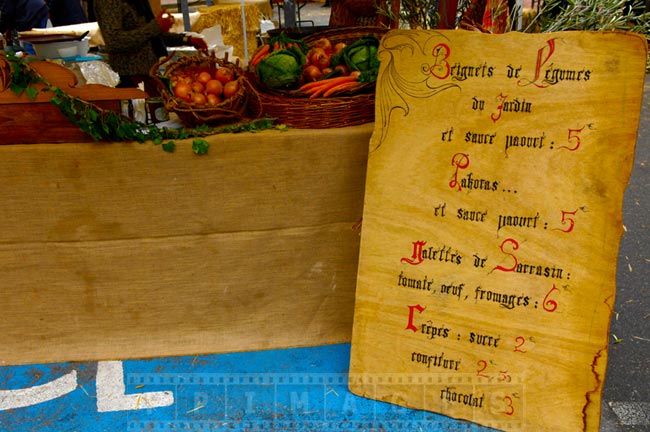 Beignets de Légumes
du Jardin
et sauce yaourt : 5€
Pakoras...
et sauce yaourt : 5€
Galettes de Sarrasin :
tomate, oeuf, fromages : 6
Crêpes : sucre 2€
confiture 2€
chocolat 3€
PRIMA